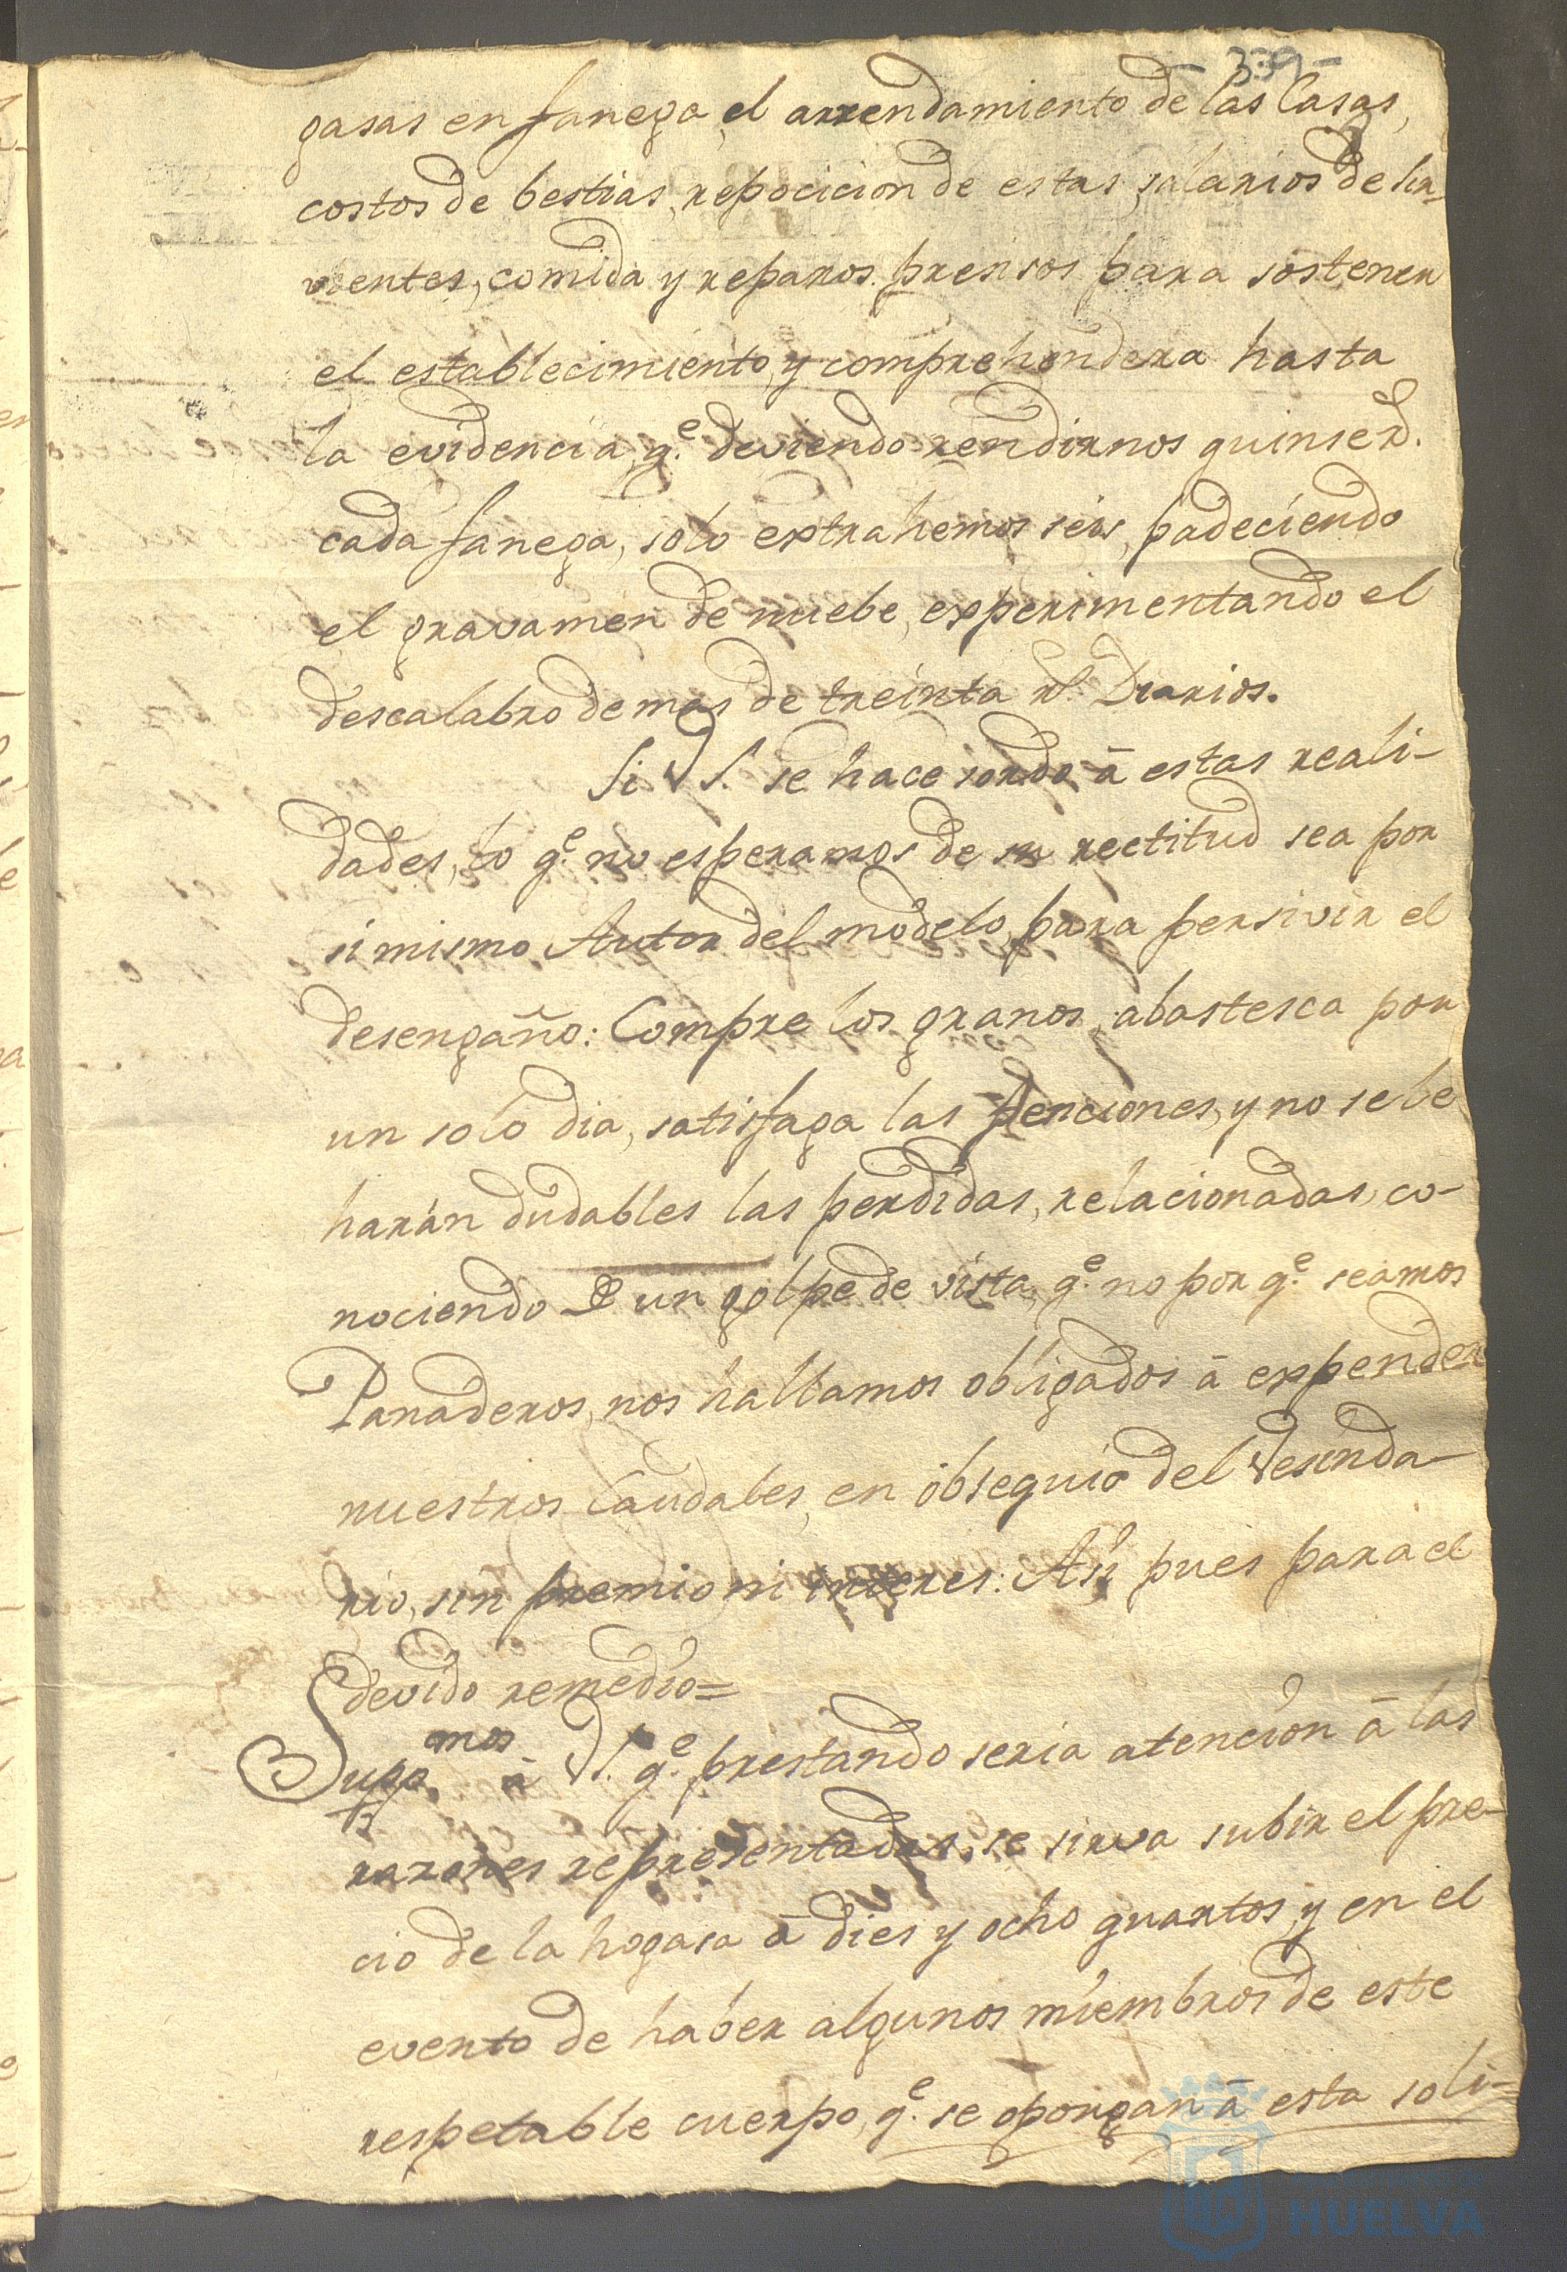 - 339 -
gasas en fanega, el arrendamiento de las Casas,
costos de bestias, repocicion de estas, salarios de sir-
vientes, comida y reparos presisos para sostener
el establecimiento, y comprehendera hasta
la evidencia, q.e deviendo rendirnos quinse rs.
cada fanega, solo extrahemos seis, padeciendo
el gravamen de nuebe, experimentando el
descalabro de mas de treinta rs. Diarios.
Si V.S. se hace sordo â estas reali-
dades, lo q.e no esperamos de su rectitud sea por
si mismo Autor del modelo, para persivir el
desengaño: Compre los granos, abastesca por
un solo dia, satisfaga las penciones, y no se le
harán dudables las perdidas, relacionadas, co-
nociendo de un golpe de vista, q.e no por q.e seamos
Panaderos, nos hallamos obligados â expender
nuestros Caudales, en obsequio del Vesinda-
rio, sin premio, ni interes: Asi pues para el
devido remedio=
Supp.mos â V.S. q.e prestando seria atencion â las
razones representadas, se sirva subir el pre-
cio de la hogasa â dies y ocho quartos, y en el
evento de haber algunos miembros de este
respetable cuerpo, q.e se opongan â esta soli-
HUELVA